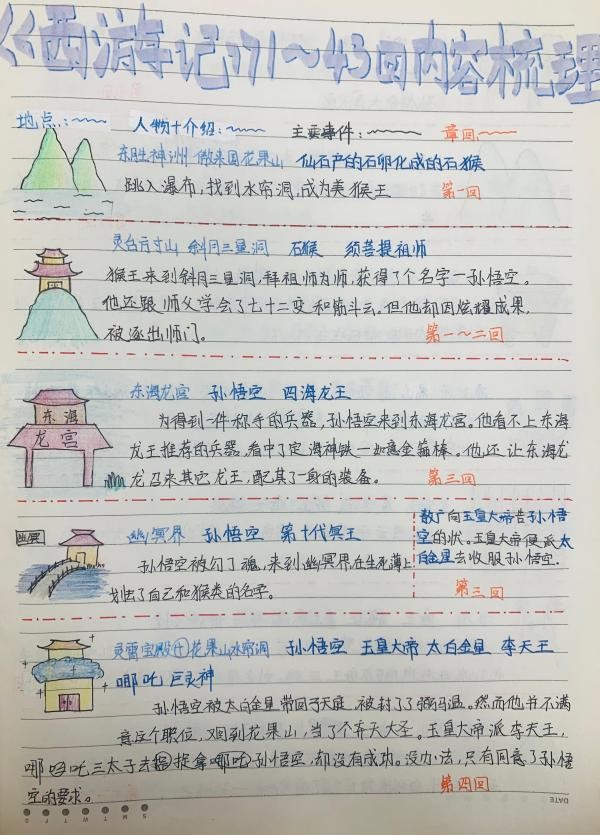 《西游记》1～43回内容梳理
地点：
人物+介绍：
主要事件：
章回
东胜神洲 傲来国花果山 仙石产的石卵化成的石猴
跳入瀑布，找到水帘洞，成为美猴王
第一回
灵台方寸山 斜月三星洞 石猴 须菩提祖师
猴王来到斜月三星洞，拜祖师为师，获得了个名字—孙悟空。
他还跟师父学会了七十二变和筋斗云。但他却因炫耀成果，
被逐出师门。
第一～二回
东海
龙宫
东海龙宫 孙悟空 四海龙王
为得到一件称手的兵器，孙悟空来到东海龙宫。他看不上东海
龙王推荐的兵器，看中了定海神铁—如意金箍棒。他还让东海龙
龙召来其它龙王，配其了一身的装备。
第三回
幽冥
幽冥界 孙悟空 第十代冥王
孙悟空被勾了魂，来到幽冥界在生死薄上
划去了自己和猴类的名字。
敖广向玉皇大帝告孙悟
空的状。玉皇大帝便派太
白金星去收服孙悟空。
第三回
灵霄宝殿 花果山水帘洞 孙悟空 玉皇大帝 太白金星 李天王
哪吒 巨灵神
孙悟空被太白金星带回了天庭，被封了了弼马温。然而他并不满
意这个职位，又回到花果山，当了个齐天大圣。玉皇大帝派李天王，
哪吒三太子去捉拿孙悟空，却没有成功。没办法，只有同意了孙悟
空的要求。
第四回
DATE
S M T W T F S